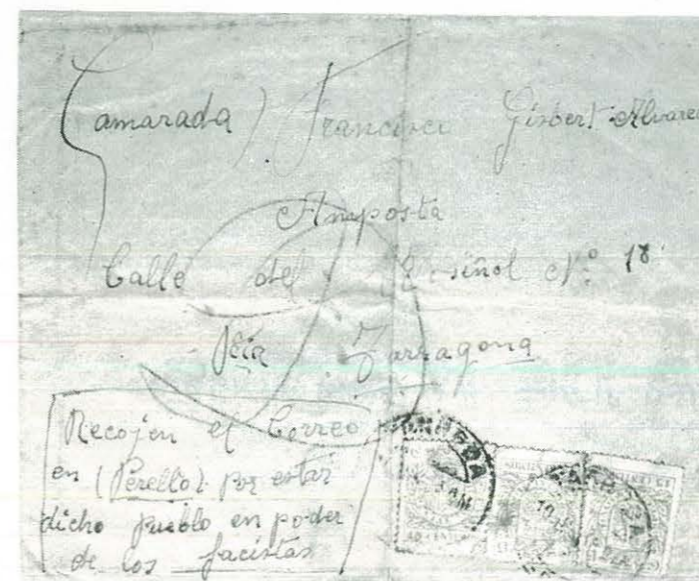 Camarada). Francisco Gisbert Alvarez
Amposta
Calle del Nº 18
Pcia Tarragona
Recojen el Correo
en (Perello). por estar
dicho pueblo en poder
de los facistas